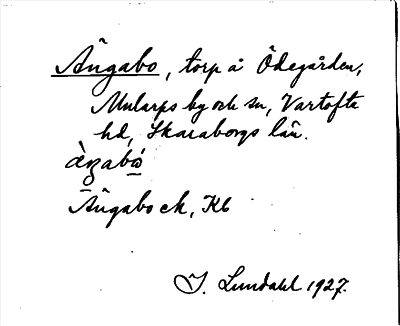 Ängabo, torp å Ödegården,
Mularps by och sn, Vartofta
hd, Skaraborgs län.
Ängabo ek, Kb
I. Lundahl 1927.